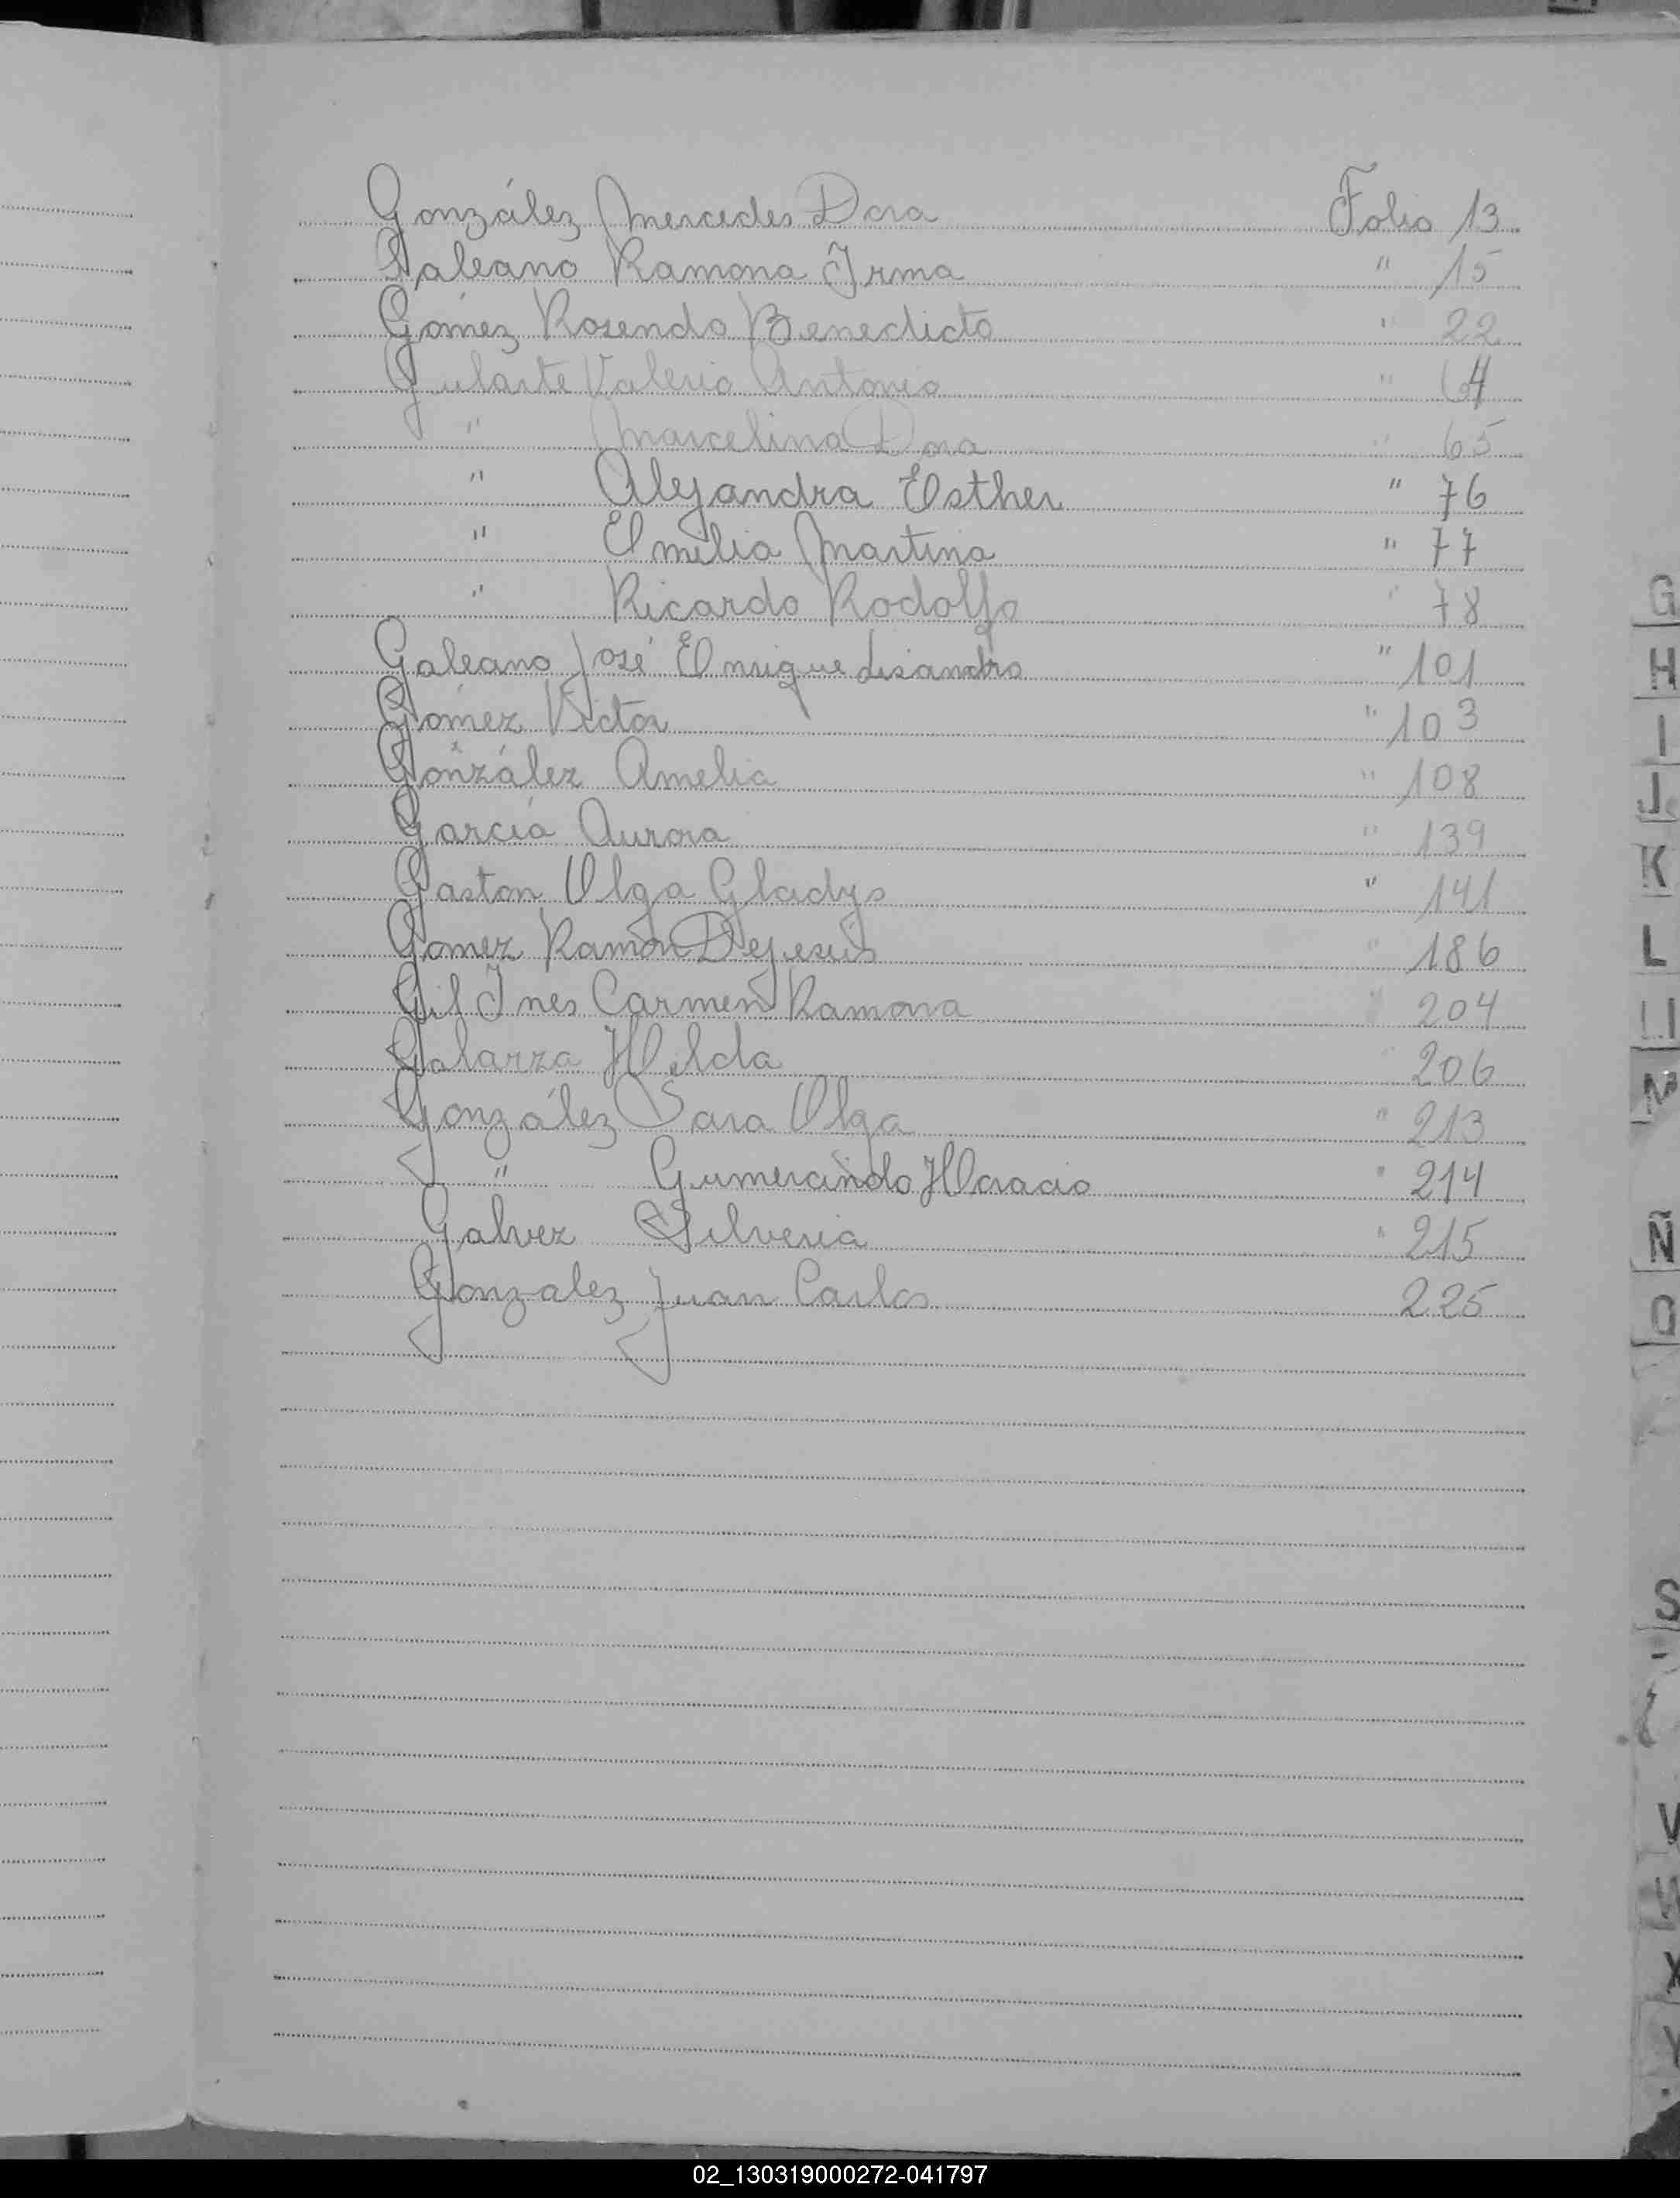 González Mercedes Dora Folio 13
Galeano Ramona Irma " 15
Gómez Rosendo Benedicto " 22
Gularte Valerio Antonio " 64
" Marcelina Dora " 65
" Alejandra Esther " 76
" Emilia Martina " 77
" Ricardo Rodolfo " 78
Galeano José Enrique Lisandro " 101
Gómez Victor " 103
González Amelia " 108
García Aurora " 139
Gaston Olga Gladys " 141
Gomez Ramón Dejesús " 186
Gil Ines Carmen Ramona " 204
Galarza Helda " 206
González Sara Olga " 213
" Gumercindo Horacio " 214
Galvez Silveria " 215
Gonzalez Juan Carlos 225
G
H
I
J
K
L
Ll
M
Ñ
O
S
V
W
X
Y
02_130319000272-041797